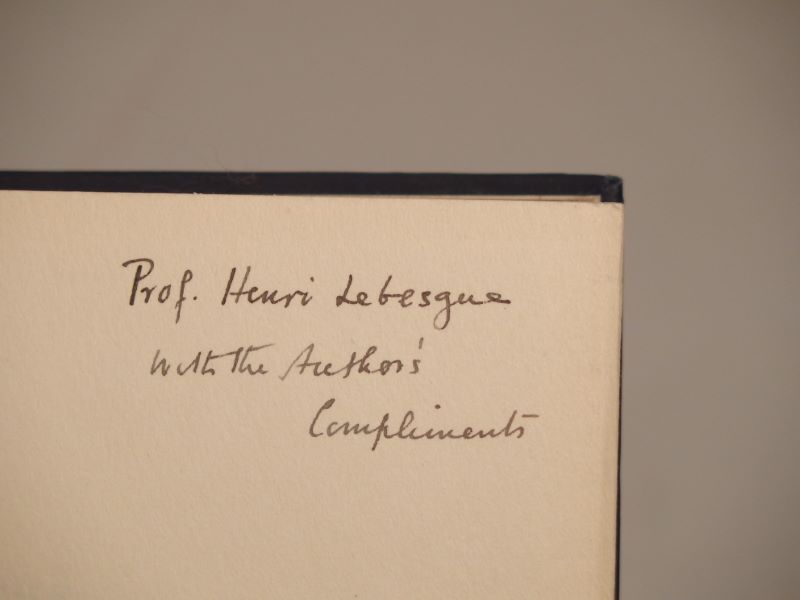 Prof. Henri Lebesgue
With the Author's
Compliments